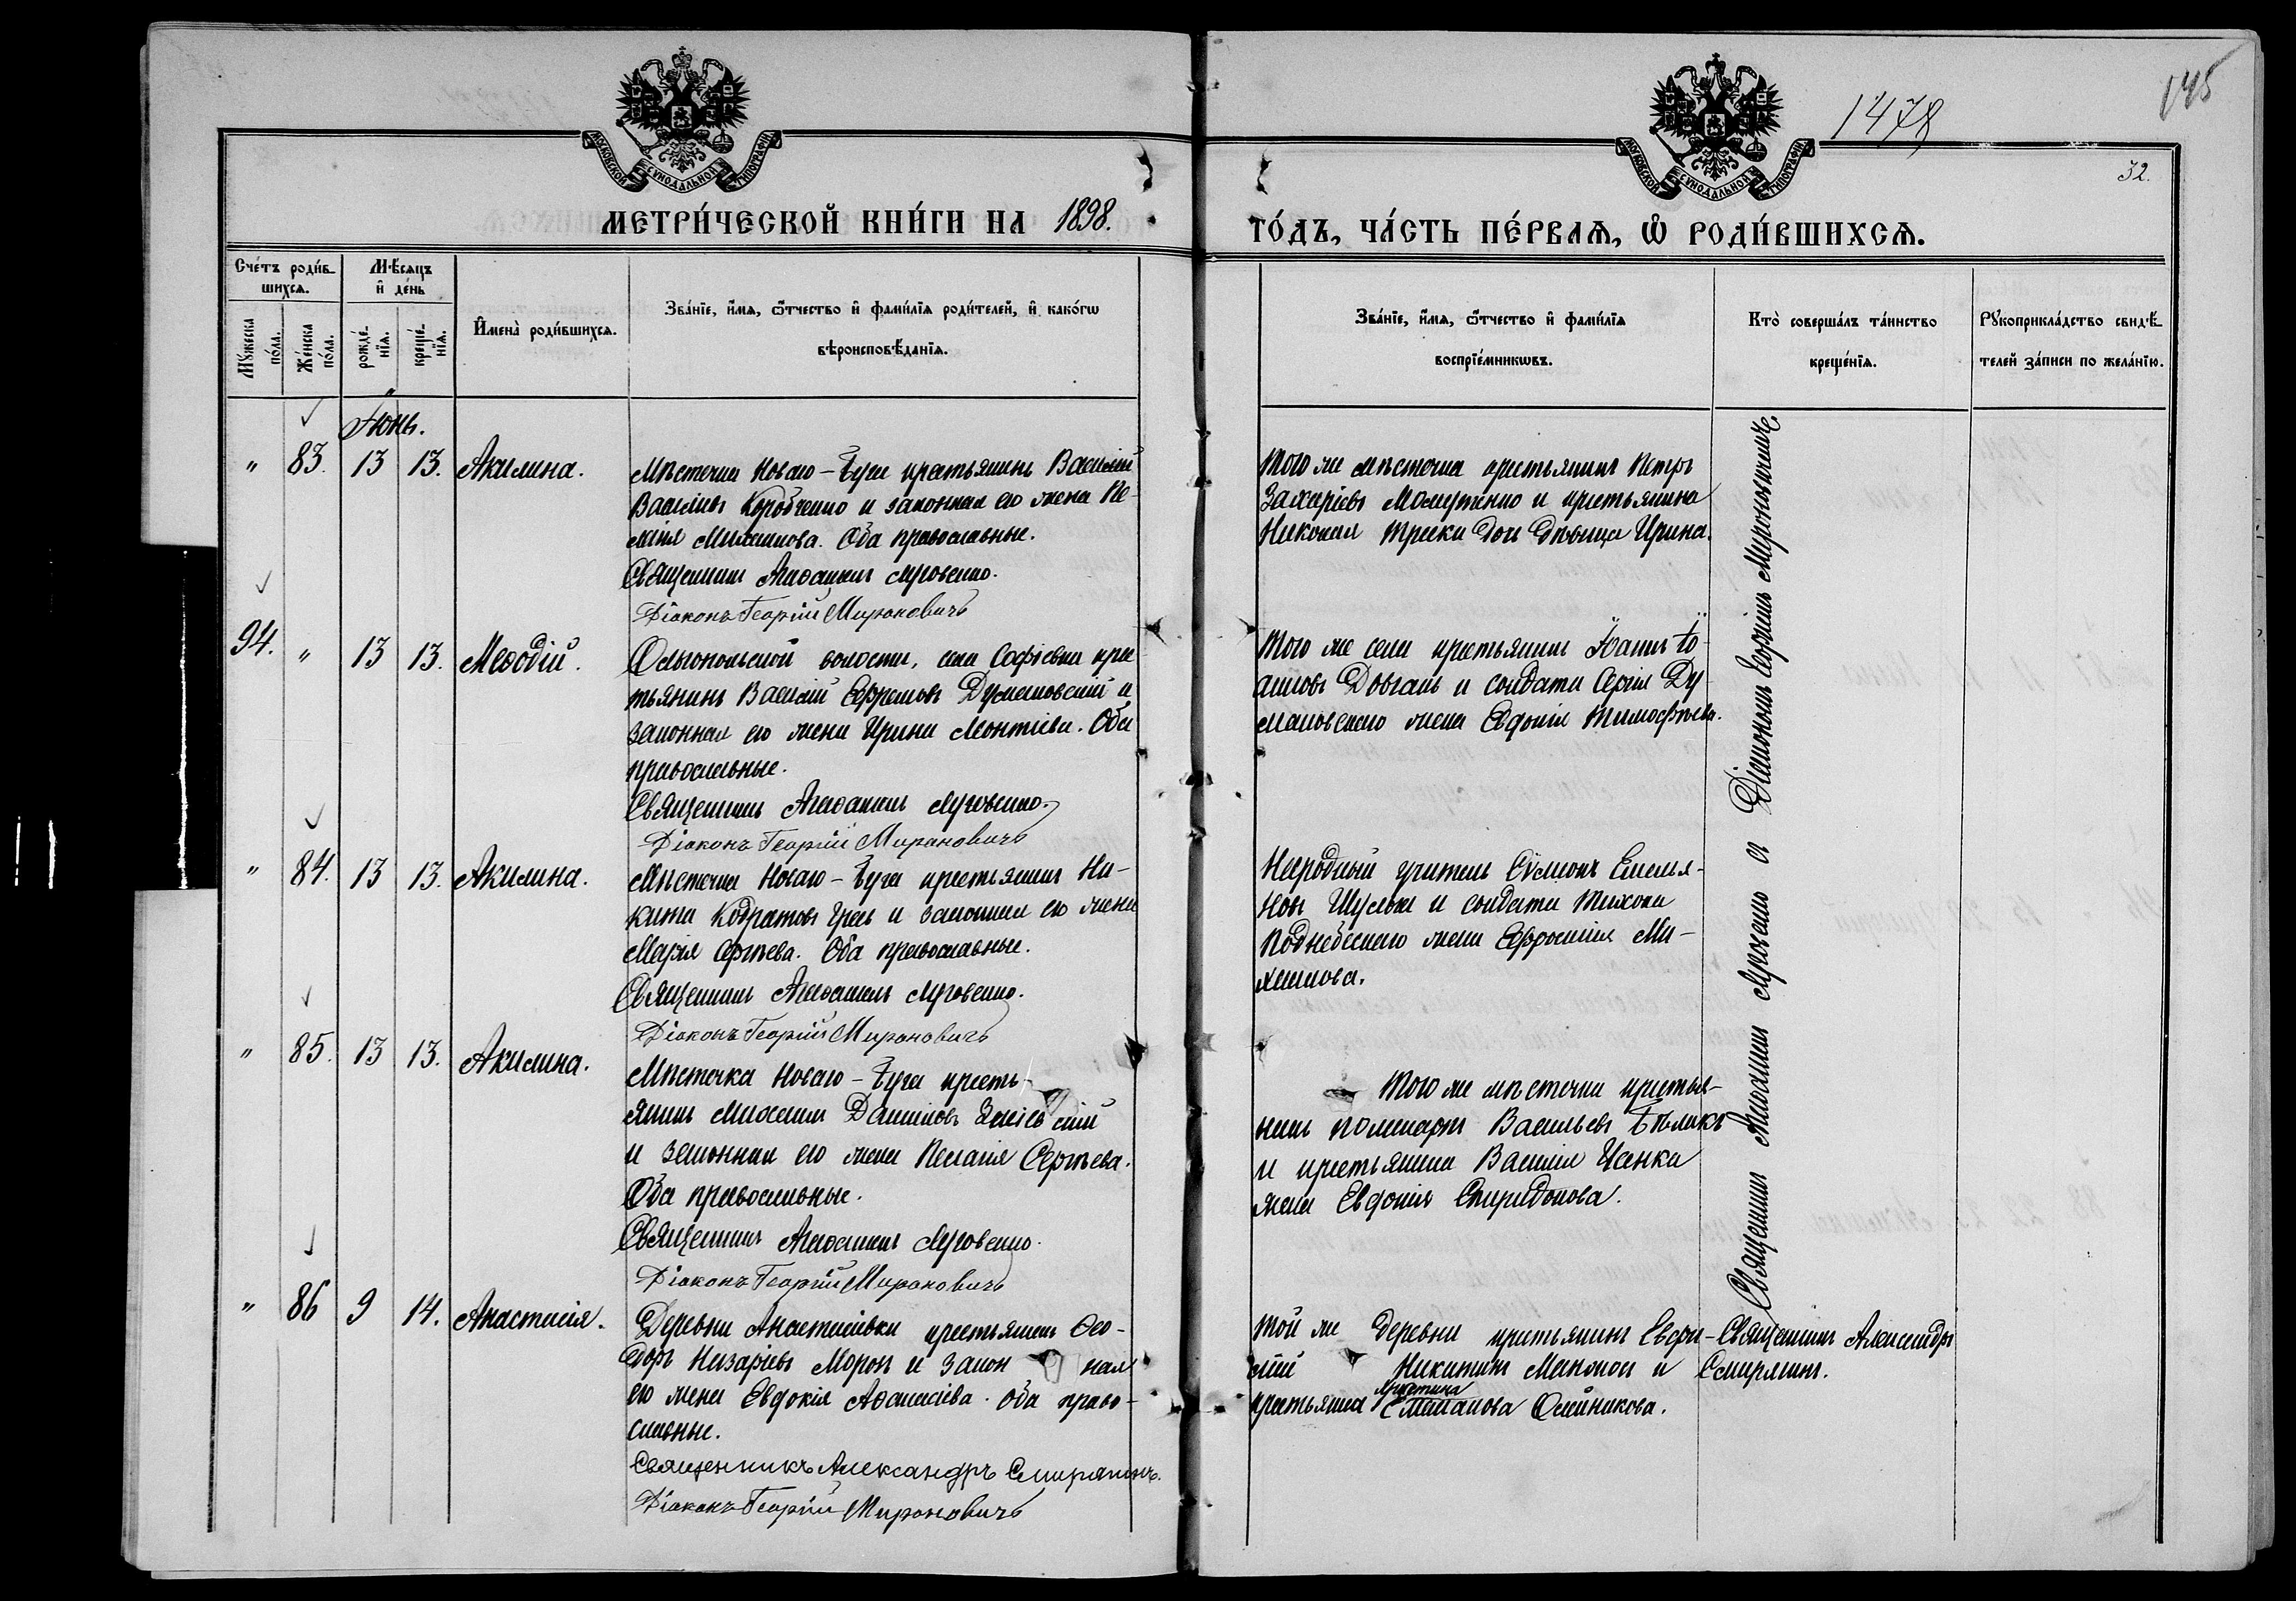 1478
145
32.
МОСКОВСКОЙ СѴНОДАЛЬНОЙ ТИПОГРАФІИ
МОСКОВСКОЙ СѴНОДАЛЬНОЙ ТИПОГРАФІИ
МЕТРИ́ЧЕСКОЙ КНИ́ГИ НА 1898.
ГО́ДЪ, ЧА́СТЬ ПЕ́РВАѦ, Ѡ РОДИ́ВШИХСѦ.
Сче́тъ роди́в-
шихсѧ.
Мꙋ́жеска по́ла.
Же́нска по́ла.
Мѣ́сѧцъ и де́нь
рожде́нїѧ.
креще́нїѧ.
Имена̀ роди́вшихсѧ.
Зва́нїе, и́мѧ, ѻ́тчество и фами́лїѧ роди́телей, и како́гѡ
вѣроисповѣ́данїѧ.
Зва́нїе, и́мѧ, ѻ́тчество и фами́лїѧ
воспрїе́мникѡвъ.
Кто̀ соверша́лъ та́инство
креще́нїѧ.
Рꙋкоприкла́дство свидѣ́-
телей за́писи по жела́нїю.
Іюнь.
" 83. 13 13. Акилина.
Мѣстечка Новаго-Буга крестьянинъ Василій
Васильевъ Коробченко и законная его жена Пе-
лагія Михаилова. Оба православные.
Священникъ Аѳанасій Луговенко.
Діаконъ Георгій Мирановичъ
Того же мѣстечка крестьянинъ Петръ
Захаріевъ и крестьянина
Николая дочь дѣвица Ирина.
94. " 13 13. Меѳодій.
Ольгопольской волости, села Софіевки крес
тьянинъ Василій Ефремовъ Думановскій и
законная его жена Ирина Леонтіева. Оба
православные.
Священникъ Аѳанасій Луговенко.
Діаконъ Георгій Мирановичъ
Того же села крестьянинъ Іоаннъ Іо-
анновъ Довгань и солдата Сергія Ду
мановскаго жена Евдокія Тимофѣева.
" 84. 13 13. Акилина.
Мѣстечка Новаго-Буга крестьянинъ Ни-
кита Кодратовъ и законная его жена
Марія Сергѣева. Оба православные.
Священникъ Аѳанасій Луговенко.
Діаконъ Георгій Мирановичъ
Народный учитель Сѵмеонъ Емелья-
новъ Шульга и солдата Тихона
Поднебеснаго жена Ефросинія Ми-
хаилова.
" 85. 13 13. Акилина.
Мѣстечка Новаго-Буга кресть-
янинъ Михаилъ Даниловъ
и законная его жена Пелагія Сергѣева.
Оба православные.
Священникъ Аѳанасій Луговенко.
Діаконъ Георгій Мирановичъ
Того же мѣстечка крестья-
нинъ Поликарпъ Васильевъ Бѣликъ
и крестьянина Василія Цанка
жена Евдокія Спиридонова.
Священникъ Аѳанасій Луговенко съ Діакономъ Георгіемъ Мироновичемъ
" 86 9 14. Анастасія.
Деревни Анастасіевки крестьянинъ Ѳео-
доръ НазаріевъМорозъ и закон ная
его жена Евдокія Аѳанасіева. Оба право-
славные.
Священникъ Александръ Смирягинъ.
Діаконъ Георгій Мирановичъ
Той же деревни крестьянинъ Евфи-
мій Никитинъ и
Христина
крестьянка Степанова Олейникова.
Священникъ Александръ
Смирягинъ.